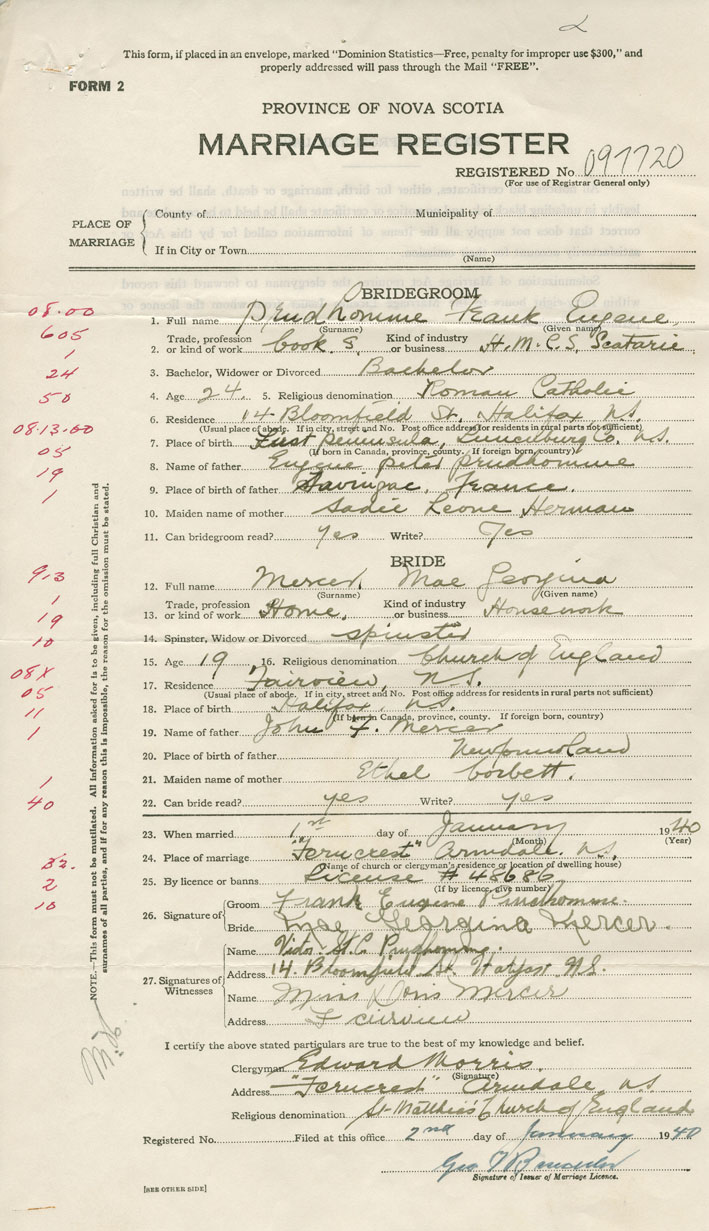 This form, if placed in an envelope, marked "Dominion Statistics—Free, penalty for improper use $300," and
properly addressed will pass through the Mail "FREE".
FORM 2
PROVINCE OF NOVA SCOTIA
MARRIAGE REGISTER
REGISTERED No. 097720
(For use of Registrar General only)
PLACE OF MARRIAGE
County of Municipality of
If in City or Town
(Name)
BRIDEGROOM
08.00
1. Full name Prudhomme Frank Eugene
(Surname) (Given name)
605
2. Trade, profession or kind of work Cook Kind of industry or business H.M.C.S. Scatarie
1
3. Bachelor, Widower or Divorced Bachelor
24
4. Age 24. 5. Religious denomination Roman Catholic
50
6. Residence 14 Bloomfield St. Halifax, N.S.
(Usual place of abode. If in city, street and No. Post office address for residents in rural parts not sufficient)
08.13.00
7. Place of birth First Peninsula, Lunenburg Co. N.S.
(If born in Canada, province, county. If foreign born, country)
05
8. Name of father Eugene Peter Prudhomme
19
9. Place of birth of father France.
1
10. Maiden name of mother Sadie Leone Herman
11. Can bridegroom read? Yes Write? Yes
BRIDE
12. Full name Mercer, Mae Georgina
(Surname) (Given name)
1
13. Trade, profession or kind of work Home, Kind of industry or business Housework
19
14. Spinster, Widow or Divorced Spinster
10
15. Age 19 16. Religious denomination Church of England
08X
17. Residence Fairview, N.S.
(Usual place of abode. If in city, street and No. Post office address for residents in rural parts not sufficient)
05
18. Place of birth Halifax, N.S.
(If born in Canada, province, county. If foreign born, country)
11
19. Name of father John F. Mercer
1
20. Place of birth of father Newfoundland
21. Maiden name of mother Ethel Corbett.
1
22. Can bride read? yes Write? yes
40
23. When married 1st day of January 1940
(Month) (Year)
24. Place of marriage "Ferncrest" Armdale, N.S.
(Name of church or clergyman's residence or location of dwelling house)
25. By licence or banns License # 48686
(If by licence, give number)
2
10
26. Signature of
Groom Frank Eugene Prudhomme.
Bride Mae Georgina Mercer.
27. Signatures of Witnesses
Name Victor St.C. Prudhomme.
Address 14. Bloomfield St. Halifax N.S.
Name Miss Doris Mercer
Address Fairview
I certify the above stated particulars are true to the best of my knowledge and belief.
Clergyman Edward Morris.
(Signature)
Address "Ferncrest" Armdale, N.S.
Religious denomination St. Matthias Church of England
Registered No. Filed at this office 2nd day of January 1940
Signature of Issuer of Marriage Licence.
[SEE OTHER SIDE]
NOTE.—This form must not be mutilated. All information asked for is to be given, including full Christian and
surnames of all parties, and if for any reason this is impossible, the reason for the omission must be stated.